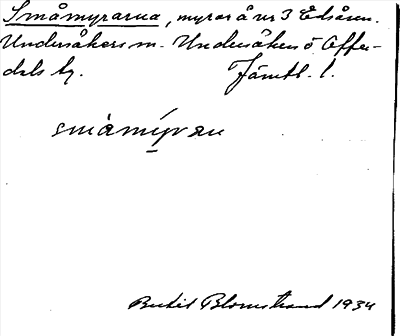 Småmyrarna, myrar å nr 3 Edsåsen.
Undersåkers sn. Undersåkers o. Offer-
dals tg. Jämtl. l.
småmýran
Bertil Blomstrand 1934